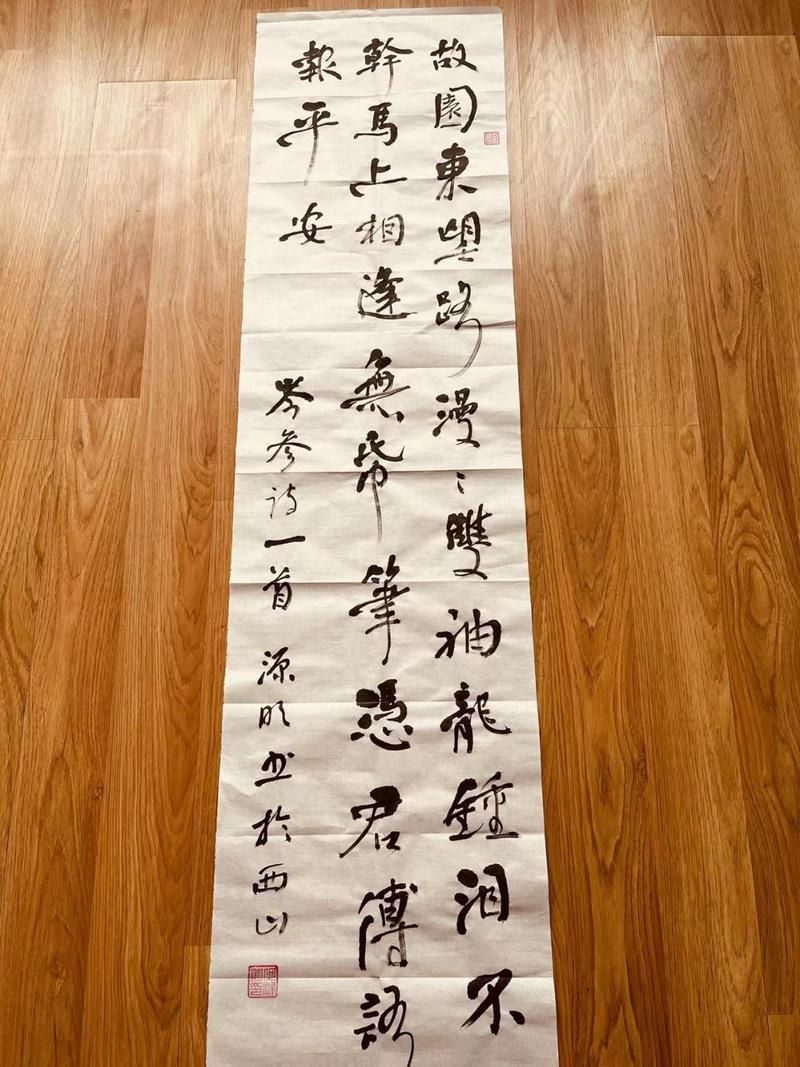 故園東望路漫〻雙袖龍鍾泪不
幹馬上相逢無帋筆憑君傳語
報平安
岑參詩一首 源明书於西山